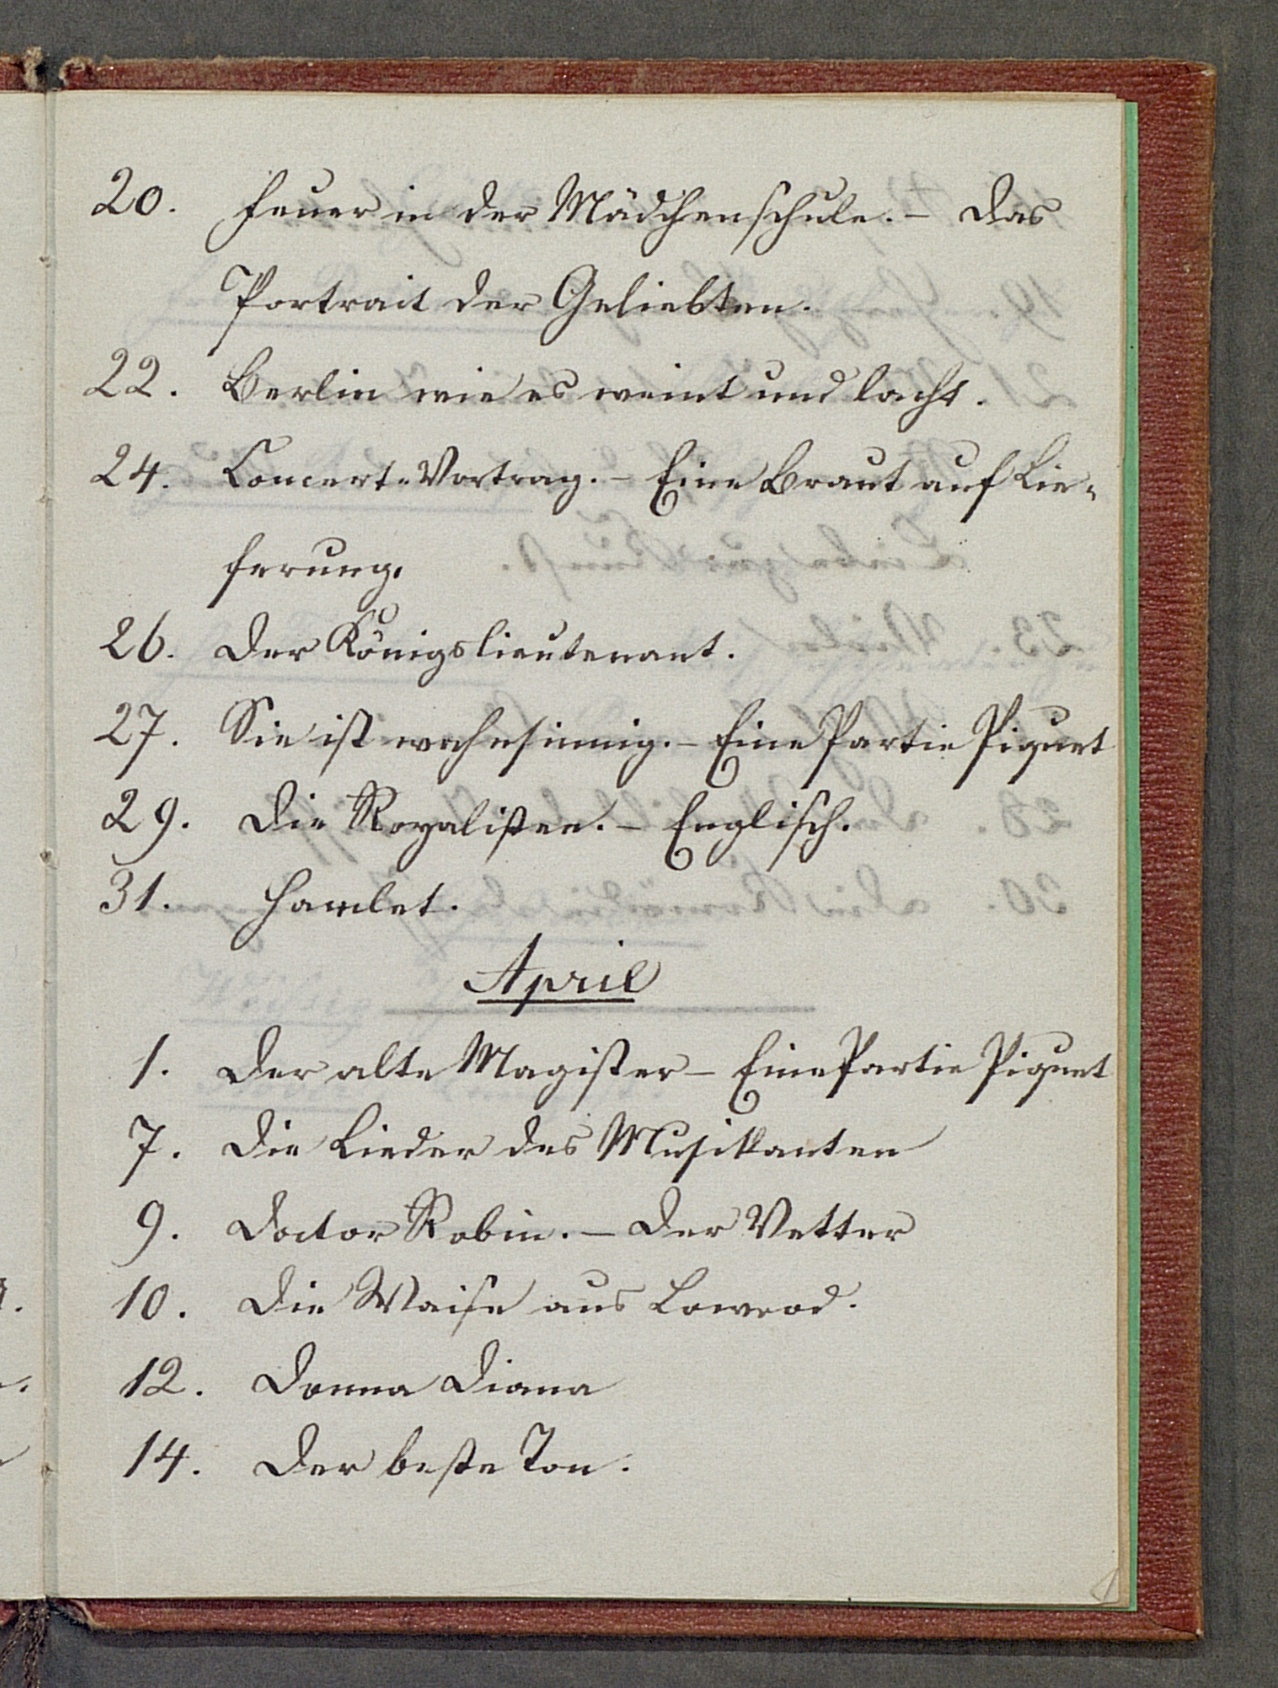 20. Feuer in der Mädchenschule. – Das
Portrait der Geliebten.
22. Berlin wie es weint und lacht.
24. Concert-Vortrag. – Eine Braut auf Lie-
ferung.
26. Der Königslieutenant.
27. Sie ist wahnsinnig. – Eine Partie Piquet
29. Die Royalisten. – Englisch.
31. Hamlet.
April
1. Der alte Magister – Eine Partie Piquet
7. Die Lieder des Musikanten
9. Doctor Robin. – Der Vetter
10. Die Waise aus Lowood.
12. Donna Diana
14. Der beste Ton.